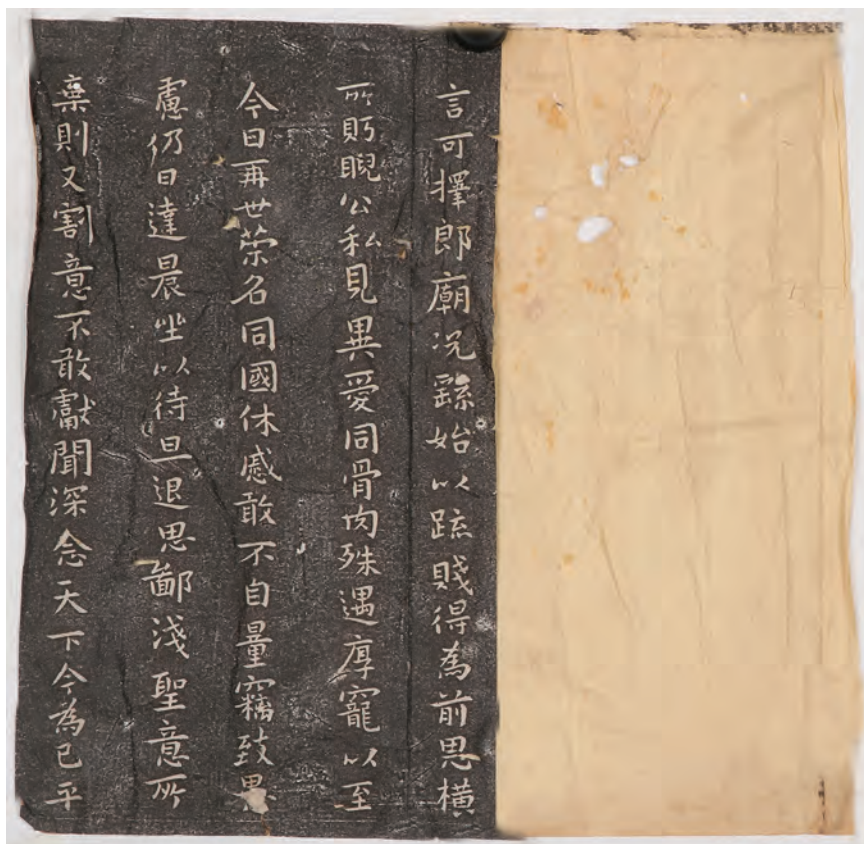 言可擇郎廟況繇始以疏賤得為前恩橫
所眄睨公私見異愛同骨肉殊遇厚寵以至
今日再世榮名同國休慼敢不自量竊致愚
慮仍日達晨坐以待旦退思鄙淺聖意所
棄則又割意不敢獻聞深念天下今為已平